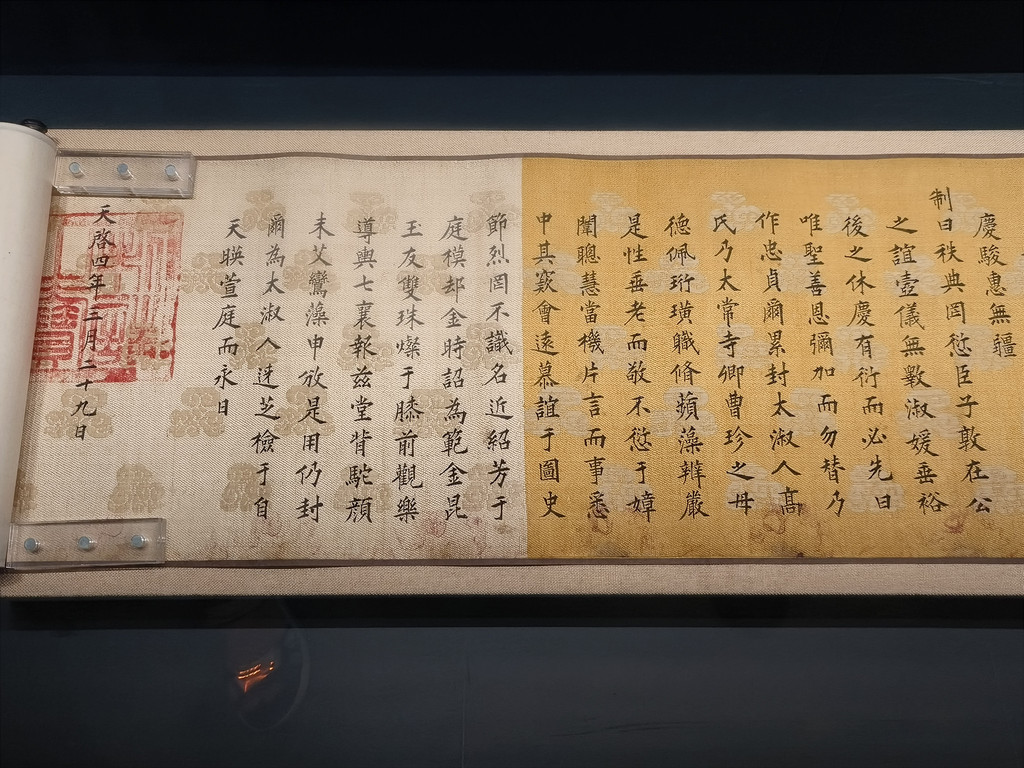 慶駿惠無疆
制曰秩典罔愆臣子敦在公
之誼壼儀無斁淑媛垂裕
後之休慶有衍而必先曰
唯聖善恩彌加而勿替乃
作忠貞爾累封太淑人高
氏乃太常寺卿曹珍之母
德佩珩璜職脩蘋藻辨嚴
是性垂老而敬不愆于婦
闈聰慧當機片言而事悉
中其窾會遠慕誼于圖史
節烈罔不識名近紹芳于
庭模卻金時詔為範金昆
玉友雙珠燦于膝前觀樂
導輿七襄報茲堂背駝顏
未艾鸞藻申攽是用仍封
爾為太淑人迷芝檢于自
天暎萱庭而永日
天啓四年二月二十九日